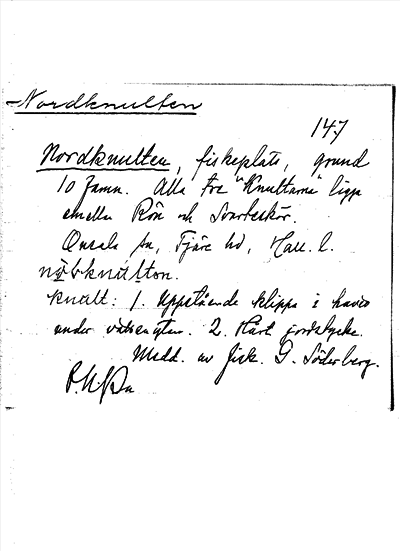 Nordknulten
147
Nordknulten, fiskeplats, grund
10 famn. Alla tre "Knultarna" ligga
emellan Rön och Svarteskär.
Onsala sn, Fjäre hd, Hall. l.
knult: 1. Uppstående klippa i havet
under vattenytan. 2. Hårt jordstycke.
Medd. av fisk. G. Söderberg.